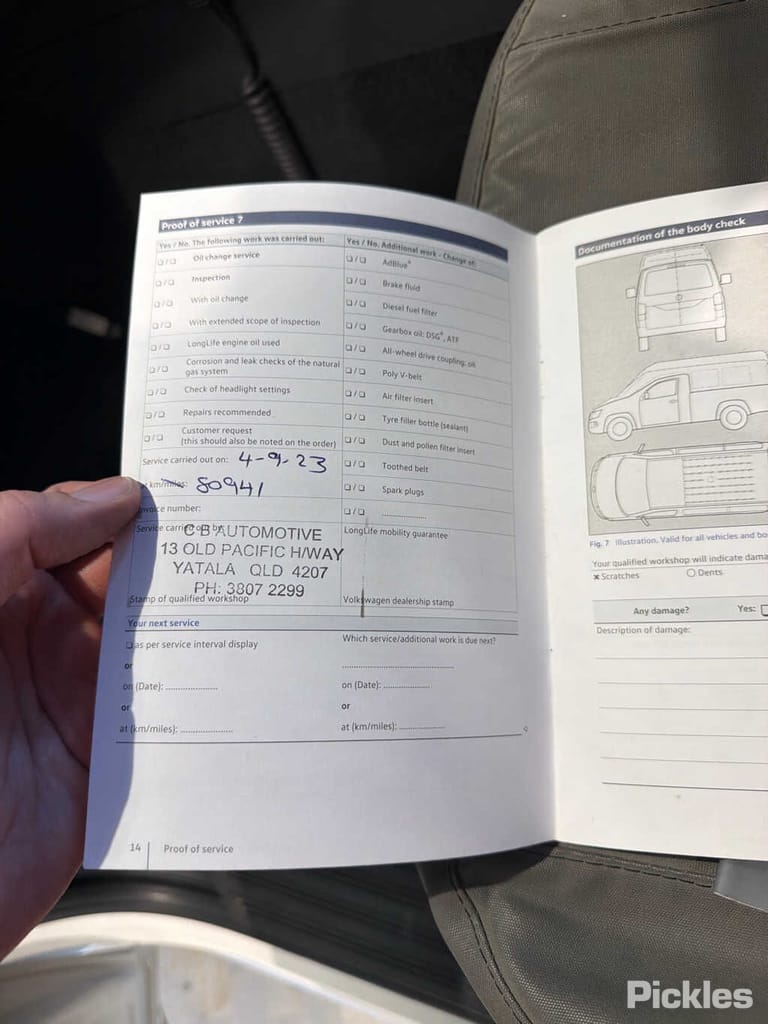 Proof of service 7
Yes / No. The following work was carried out:
Yes / No. Additional work - Change of:
☐ / ☐ Oil change service
☐ / ☐ AdBlue®
☐ / ☐ Inspection
☐ / ☐ Brake fluid
☐ / ☐ With oil change
☐ / ☐ Diesel fuel filter
☐ / ☐ With extended scope of inspection
☐ / ☐ Gearbox oil: DSG®, ATF
☐ / ☐ LongLife engine oil used
☐ / ☐ All-wheel drive coupling: oil
☐ / ☐ Corrosion and leak checks of the natural
gas system
☐ / ☐ Poly V-belt
☐ / ☐ Check of headlight settings
☐ / ☐ Air filter insert
☐ / ☐ Repairs recommended
☐ / ☐ Tyre filler bottle (sealant)
☐ / ☐ Customer request
(this should also be noted on the order)
☐ / ☐ Dust and pollen filter insert
Service carried out on: 4-9-23
☐ / ☐ Toothed belt
km/miles: 80941
☐ / ☐ Spark plugs
invoice number:
☐ / ☐ ....................
Service carried out by
C B AUTOMOTIVE
13 OLD PACIFIC H/WAY
YATALA QLD 4207
PH: 3807 2299
Stamp of qualified workshop
LongLife mobility guarantee
Volkswagen dealership stamp
Your next service
☐ as per service interval display
Which service/additional work is due next?
or
on (Date): ....................
on (Date): ....................
or
or
at (km/miles): ....................
at (km/miles): ....................
14 Proof of service
Documentation of the body check
Fig. 7 Illustration. Valid for all vehicles and bo
Your qualified workshop will indicate dama
x Scratches ○ Dents
Any damage? Yes: ☐
Description of damage:
Pickles